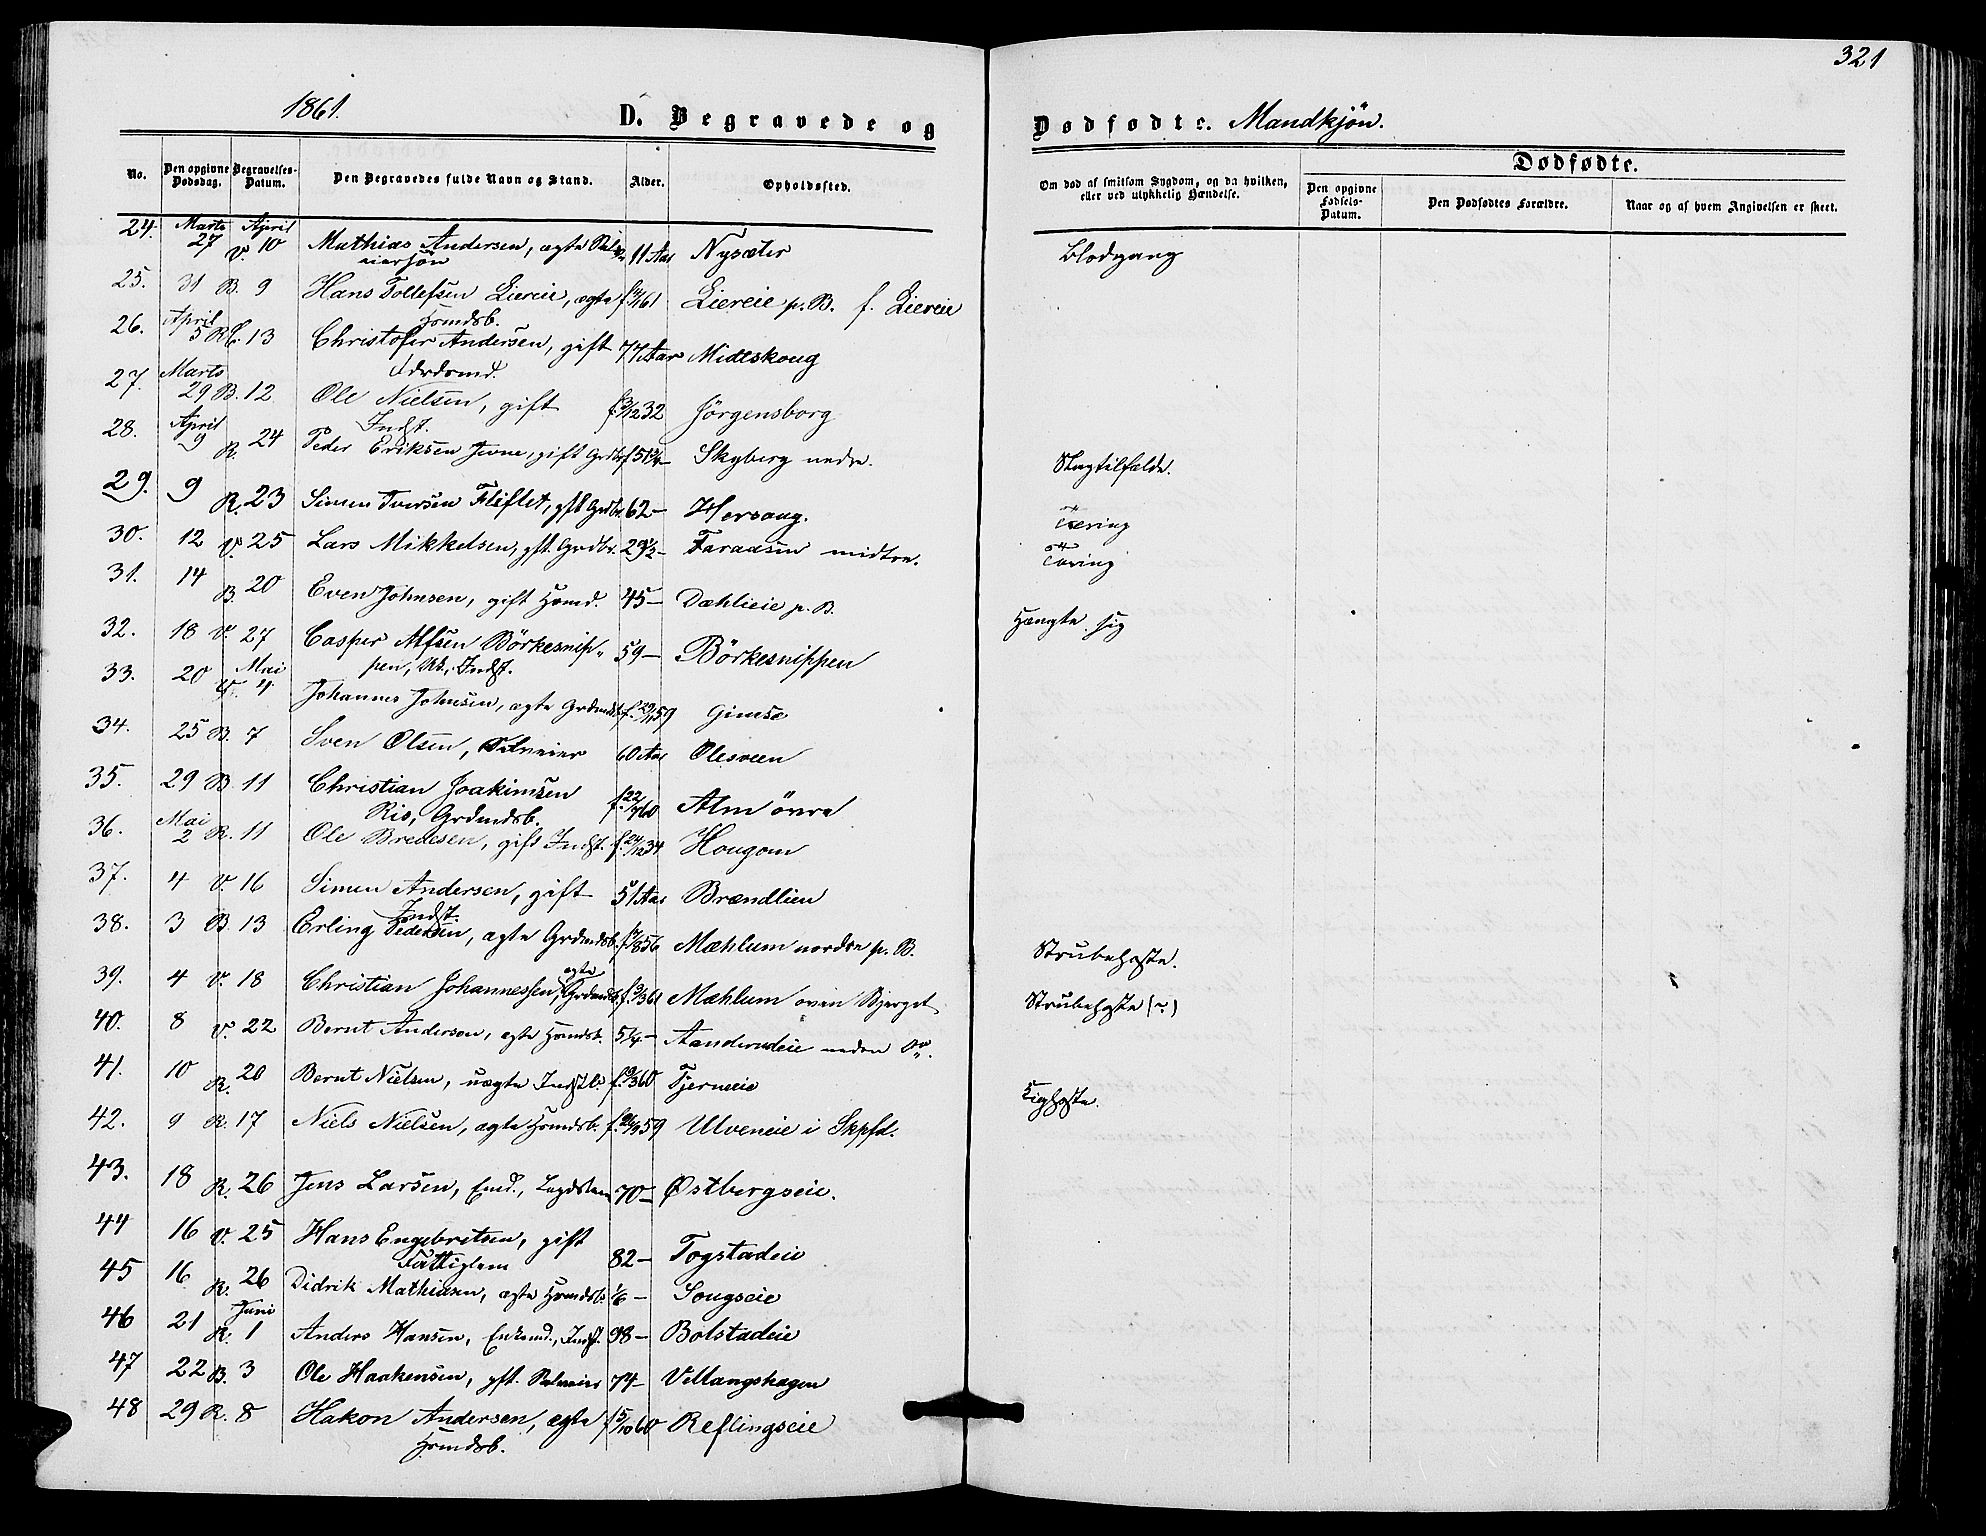 321
1861.
D. Begravede og Dødfødte. Mandkjön.
No.
Den opgivne Dødsdag.
Begravelses-Datum.
Den Begravedes fulde Navn og Stand.
Alder.
Opholdssted.
Om død af smitsom Sygdom, og da hvilken, eller ved ulykkelig Hændelse.
Dødfødte.
Den opgivne Fødsels-Datum.
Den Dødfødtes Forældre.
Naar og af hvem Angivelsen er skeet.
24. Marts 27 V. April 10 Mathias Andersen, ægte
eiersön 11 Aar Nysæter Blodgang
25. 31 B. 9 Hans Tollefsen Liereie, ægte
Hsmdsb. Liereie p. B. f. Liereie
26. April 5 13 Christofer Andersen, gift
77 Aar Midtskoug
27. Marts 29 B. 12 Ole Nielsen, gift
Indst. f. 3/12 32 Jörgensborg
28. April 9 R. 24 Peder Eriksen Jevne, gift Skyberg nedre. Slagtilfælde.
29. 9 R. 23 Simen Iversen Fliflet, gft Grdbr. 62 – Horsoug. Tæring
30. 12 V. 25 Lars Mikkelsen, gft. Grdbr. 29 1/2 – Faraasen midtre. Tæring
31. 14 B. 20 Even Johnsen, gift Hsmd. 45 – Dæhlieie p. B. Hængte sig
32. 18 V. 27 Casper Alfsen Börkesnip-
pen, Uk., Indst. 59 – Börkesnippen
33. 20 V. Mai 4 Johannes Johnsen, ægte Grdmdsb. Gimse
34. 25 B. 7 Sven Olsen, Selveier 60 Aar Olesveen
35. 29 B. 11 Christian Joakimsen
Ris, Grdmdsb. Alm övre
36. Mai 2 R. 11 Ole Bredesen, gift Indst. f. 24/12 34 Hougom
37. 4 V. 16 Simen Andersen, gift
Indst. 51 Aar Brændlien
38. 3 B. 13 Erling Pedersen, ægte Grdmdsb. Mæhlum nordre p. B. Strubehoste.
39. 4 V. 18 Christian Johannessen, ægte Grdmdsb. Mæhlum oven Bjerget Strubehoste (?)
40. 8 V. 22 Bernt Andersen, ægte Hsmdsb. 5/4 – Aanderudeie neden
41. 10 R. 20 Bernt Nielsen, uægte Tjerneeie Kighoste.
42. 9 R. 17 Niels Nielsen, ægte Hsmdsb. Ulveneie i Skpfd.
43. 18 R. 26 Jens Larsen, Emd., Lægdslem 70 – Østbergseie.
44 16 V. 25 Hans Engebretsen, gift
Fattiglem 82 – Togstadeie
45 16 R. 26 Didrik Mathiasen, ægte Hsmdsb. 1/6 – Sougseie
46 21 R. Juni 1 Anders Hansen, Enkemd., Indst. 98 – Bolstadeie
47 22 B. 3 Ole Haakensen, gft. Selveier 74 – Vellangshagen
48 29 R. 8 Hakon Andersen, ægte
Hsmdsb. f 5/10 60 Reflingseie